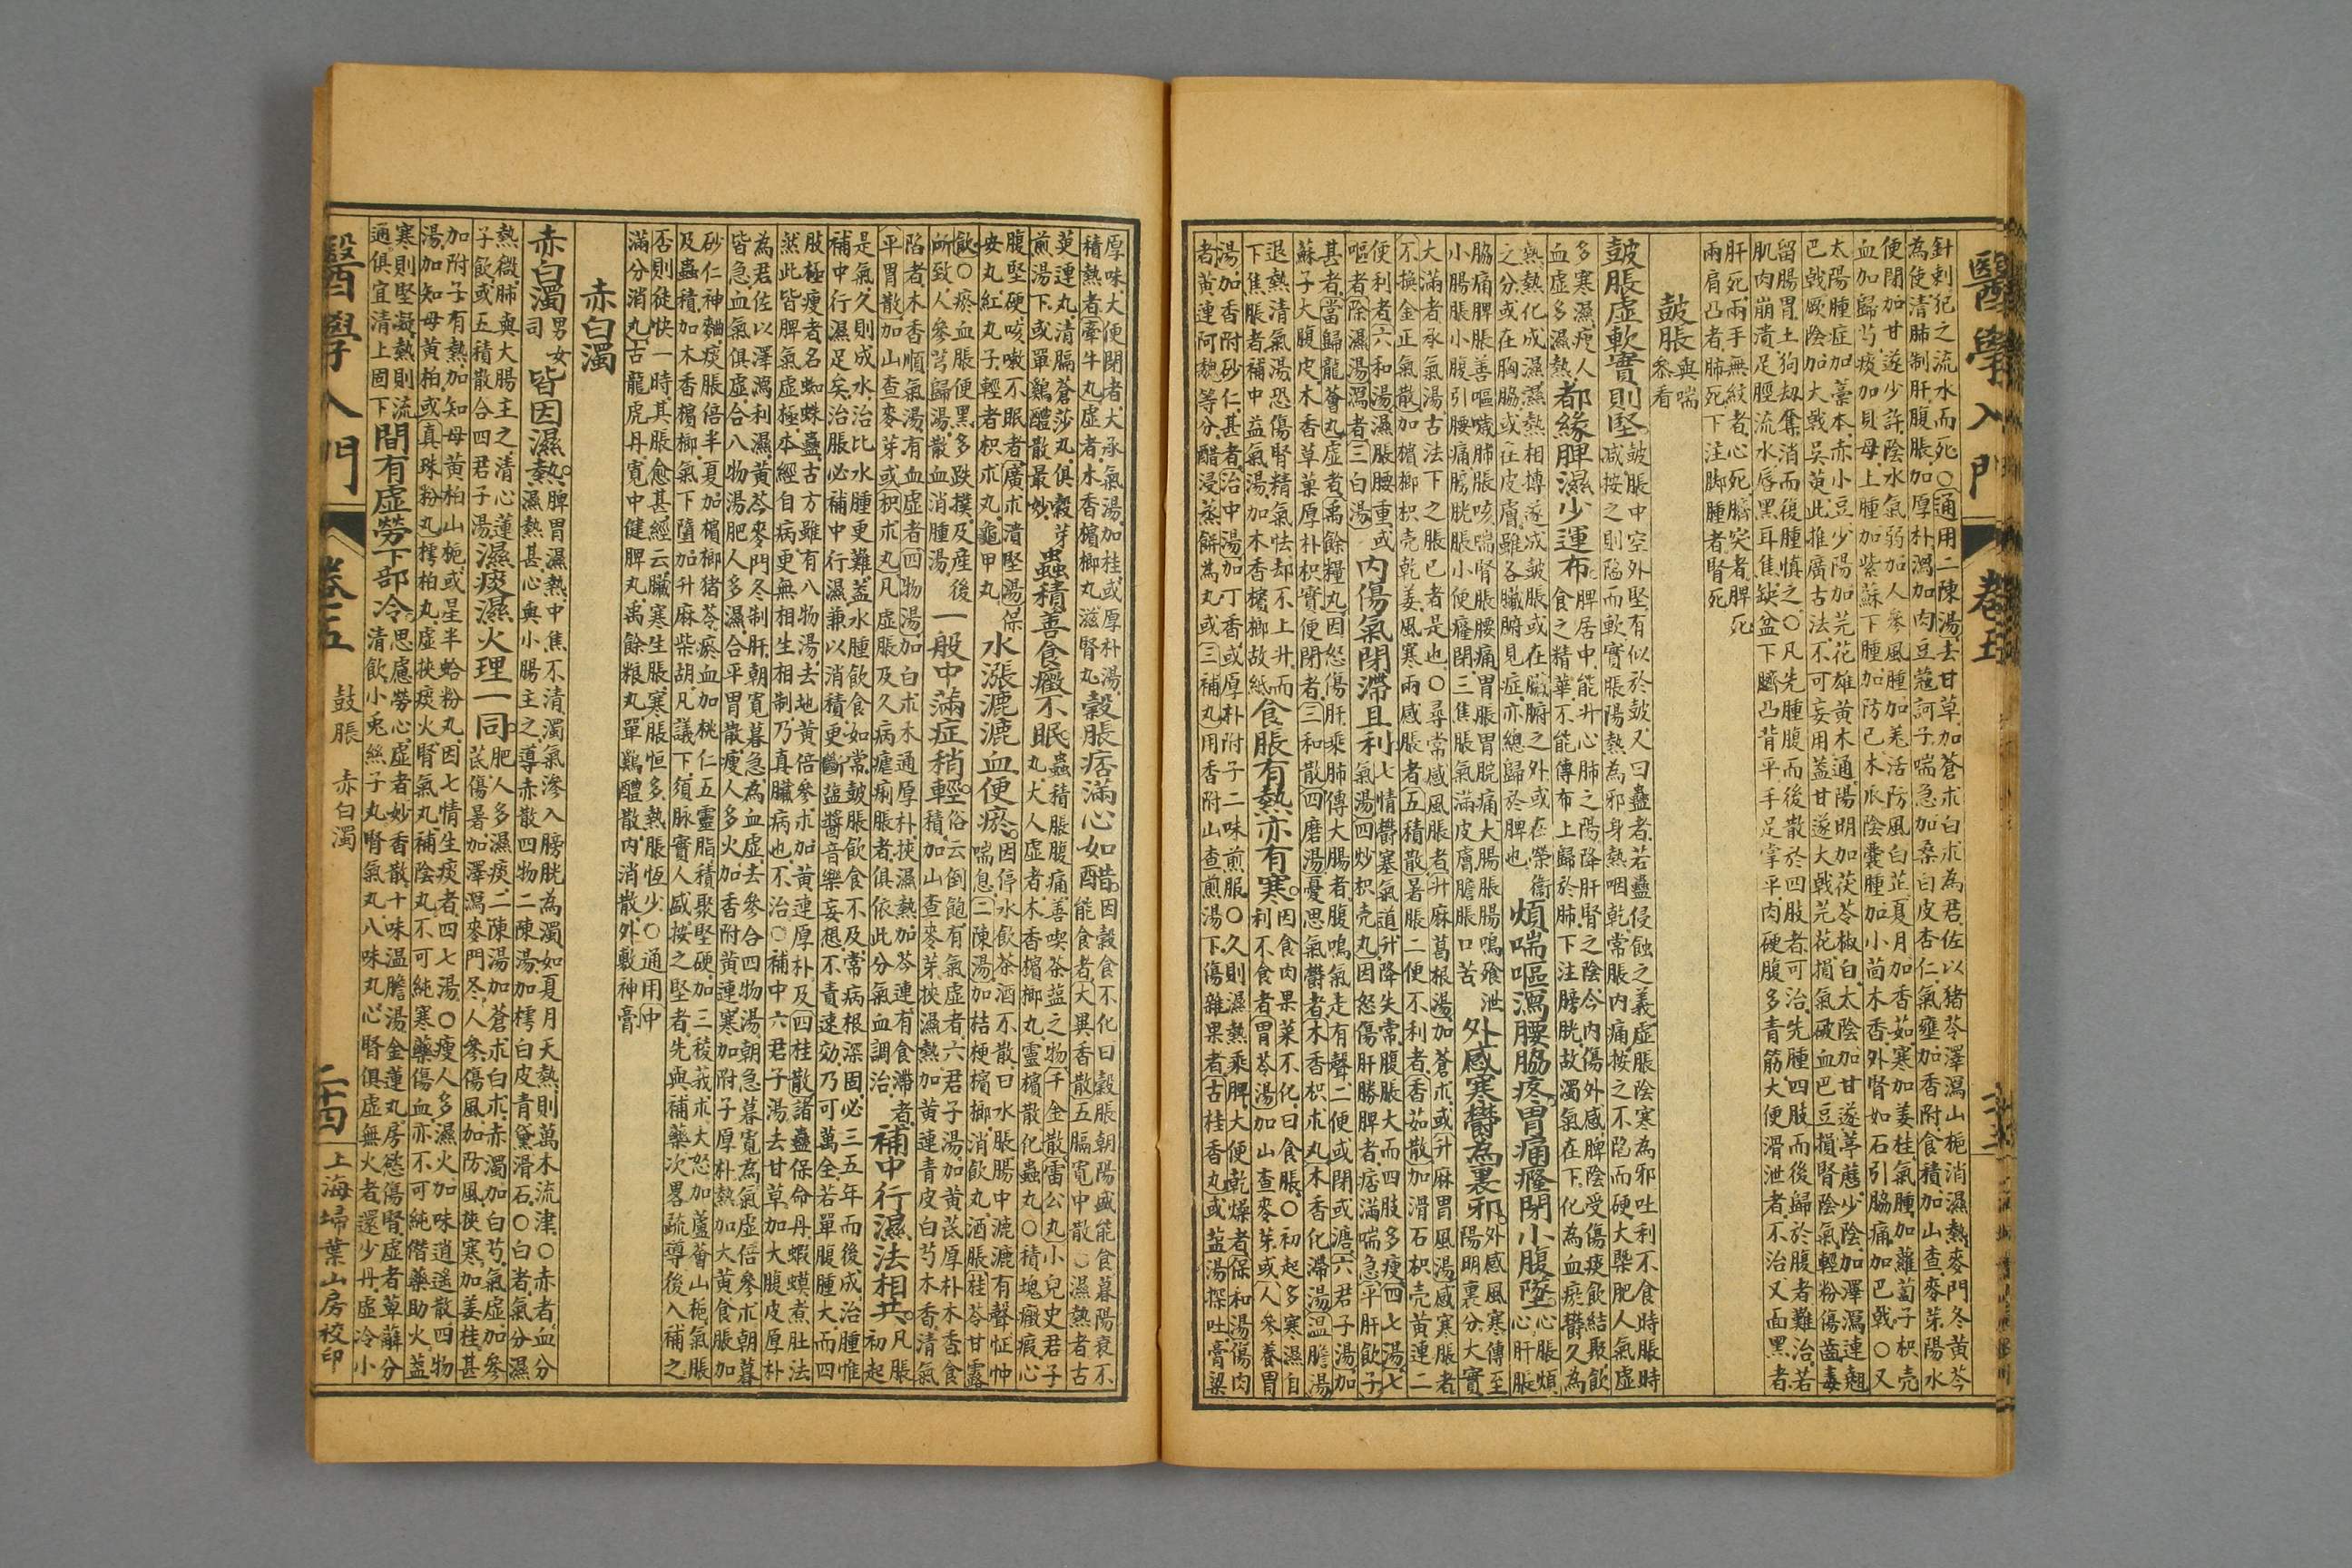 醫學入門 卷五
針刺犯之流水而死○通用二陳湯去甘草加蒼朮白朮為君佐以猪苓澤瀉山梔消濕熱麥門冬黃芩
為使清肺制肝腹脹加厚朴瀉加肉豆蔻訶子喘急加桑白皮杏仁氣壅加香附食積加山查麥芽陽水
便閉加甘遂少許陰水氣弱加人參風腫加羌活防風白芷夏月加香茹寒加姜桂氣腫加蘿蔔子枳壳
血加歸芍痰加貝母上腫加紫蘇下腫加防已木瓜陰囊腫加小茴木香外腎如石引脇痛加巴戟○又
太陽腫症加藁本赤小豆少陽加芫花雄黃木通陽明加茯苓椒白太陰加甘遂葶藶少陰加澤瀉連翹
巴戟厥陰加大戟吳茰此推廣古法不可妄用蓋甘遂大戟芫花損氣破血巴豆損腎陰氣輕粉傷齒毒
留腸胃土狗刼奪消而復腫慎之○凡先腫腹而後散於四肢者可治先腫四肢而後歸於腹者難治若
肌肉崩潰足脛流水唇黑耳焦缺盆下臍凸背平手足掌平肉硬腹多青筋大便滑泄者不治又面黑者
肝死兩手無紋者心死臍突者脾死
兩肩凸者肺死下注脚腫者腎死
鼓脹 與喘參看
皷脹虛軟實則堅
皷脹中空外堅有似於皷又曰蠱者若蠱侵蝕之義虛脹陰寒為邪吐利不食時脹時
減按之則陷而軟實脹陽熱為邪身熱咽乾常脹內痛按之不陷而硬大槩肥人氣虛
多寒濕瘦人
血虛多濕熱
都緣脾濕少運布
脾居中能升心肺之陽降肝腎之陰今內傷外感脾陰受傷痰飲結聚飲
食之精華不能傳布上歸於肺下注膀胱故濁氣在下化為血瘀鬱久為
熱熱化成濕濕熱相搏遂成皷脹或在臟腑之外或在榮衞
之分或在胸脇或在皮膚雖各臟腑見症亦總歸於脾也
煩喘嘔瀉腰脇疼胃痛癃閉小腹墜
心脹煩
心肝脹
脇痛脾脹善嘔噦肺脹咳喘腎脹腰痛胃脹胃脘痛大腸脹腸鳴飱泄
小腸脹小腹引腰痛膀胱脹小便癃閉三焦脹氣滿皮膚膽脹口苦
外感寒鬱為裏邪
外感風寒傳至
陽明裏分大實
大滿者承氣湯古法下之脹已者是也○尋常感風脹者升麻葛根湯加蒼朮或升麻胃風湯感寒脹者
不換金正氣散加梹榔枳壳乾姜風寒兩感脹者五積散暑脹二便不利者香茹散加滑石枳壳黃連二
便利者六和湯濕脹腰重或
嘔者除濕湯瀉者三白湯
內傷氣閉滯且利
七情鬱塞氣道升降失常腹脹大而四肢多瘦四七湯七
氣湯四炒枳壳丸因怒傷肝肝勝脾者痞滿喘急平肝飲子
甚者當歸龍薈丸虛者禹餘糧丸因怒傷肝乘肺傳大腸者腹鳴氣走有聲二便或閉或溏六君子湯加
蘇子大腹皮木香草菓厚朴枳實便閉者三和散四磨湯憂思氣鬱者木香枳朮丸木香化滯湯温膽湯
退熱清氣湯恐傷腎精氣怯却不上升而
下焦脹者補中益氣湯加木香檳榔故紙
食脹有熱亦有寒
因食肉果菜不化曰食脹○初起多寒濕自
利不食者胃苓湯加山查麥芽或人參養胃
湯加香附砂仁甚者治中湯加丁香或厚朴附子二味煎服○久則濕熱乘脾大便乾燥者保和湯傷肉
者黃連阿魏等分醋浸蒸餅為丸或三補丸用香附山查煎湯下傷雜果者古桂香丸或鹽湯探吐膏粱
厚味大便閉者大承氣湯加桂或厚朴湯
積熱者牽牛丸虛者木香檳榔丸滋腎丸
穀脹痞滿心如醋
因穀食不化曰穀脹朝陽盛能食暮陽衰不
能食者大異香散五膈寬中散○濕熱者古
茰連丸清膈蒼莎丸俱穀芽
煎湯下或單鷄醴散最妙
蟲積善食癥不眠
蟲積脹腹痛善喫茶鹽之物千金散雷公丸小兒史君子
丸大人虛者木香檳榔丸靈檳散化蟲丸○積塊癥瘕心
腹堅硬咳嗽不眠者廣朮潰堅湯保
安丸紅丸子輕者枳朮丸龜甲丸
水漲漉漉血便瘀
因停水飲茶酒不散曰水脹腸中漉漉有聲怔忡
喘息二陳湯加桔梗檳榔消飲丸酒脹桂苓甘露
飲○瘀血脹便黑多跌撲及産後
所致人參芎歸湯散血消腫湯
一般中滿症稍輕
俗云倒飽有氣虛者六君子湯加黃芪厚朴木香食
積加山查麥芽挾濕熱加黃連青皮白芍木香清氣
陷者木香順氣湯有血虛者四物湯加白朮木通厚朴挾濕熱加芩連有食滯者
平胃散加山查麥芽或枳朮丸凡虛脹及久病瘧痢脹者俱依此分氣血調治
補中行濕法相共
凡脹
初起
是氣久則成水治比水腫更難蓋水腫飲食如常皷脹飲食不及常病根深固必三五年而後成治腫惟
補中行濕足矣治脹必補中行濕兼以消積更斷鹽醬音樂妄想不責速効乃可萬全若單腹腫大而四
肢極瘦者名蜘蛛蠱古方雖有八物湯去地黃倍參朮加黃連厚朴及四桂散諸蠱保命丹蝦蟆煮肚法
然此皆脾氣虛極本經自病更無相生相制乃真臟病也不治○補中六君子湯去甘草加大腹皮厚朴
為君佐以澤瀉利濕黃芩麥門冬制肝朝寬暮急為血虛去參合四物湯朝急暮寬為氣虛倍參朮朝暮
皆急血氣俱虛合八物湯肥人多濕合平胃散瘦人多火加香附黃連寒加附子厚朴熱加大黃食脹加
砂仁神麯痰脹倍半夏加檳榔猪苓瘀血加桃仁五靈脂積聚堅硬加三稜莪朮大怒加蘆薈山梔氣脹
及蟲積加木香檳榔氣下墮加升麻柴胡凡議下須脉實人盛按之堅者先與補藥次畧疏導後入補之
否則徒快一時其脹愈甚經云臟寒生脹寒脹恒多熱脹恆少○通用中
滿分消丸古龍虎丹寬中健脾丸禹餘粮丸單鷄醴散內消散外敷神膏
赤白濁
赤白濁
男女
司
皆因濕熱
脾胃濕熱中焦不清濁氣滲入膀胱為濁如夏月天熱則萬木流津○赤者血分
濕熱甚心與小腸主之導赤散四物二陳湯加樗白皮青黛滑石○白者氣分濕
熱微肺與大腸主之清心蓮
子飲或五積散合四君子湯
濕痰濕火理一同
肥人多濕痰二陳湯加蒼朮白朮赤濁加白芍氣虛加參
芪傷暑加澤瀉麥門冬人參傷風加防風挾寒加姜桂甚
加附子有熱加知母黃柏山梔或星半蛤粉丸因七情生痰者四七湯○瘦人多濕火加味逍遥散四物
湯加知母黃柏或真珠粉丸樗柏丸虛挾痰火腎氣丸補陰丸不可純寒藥傷血亦不可純僭藥助火蓋
寒則堅凝熱則流
通俱宜清上固下
間有虛勞下部冷
思慮勞心虛者妙香散十味温膽湯金蓮丸房慾傷腎虛者草薢分
清飲小兎絲子丸腎氣丸八味丸心腎俱虛無火者還少丹虛冷小
醫學入門 卷五 鼓脹 赤白濁 二十四 上海埽葉山房校印